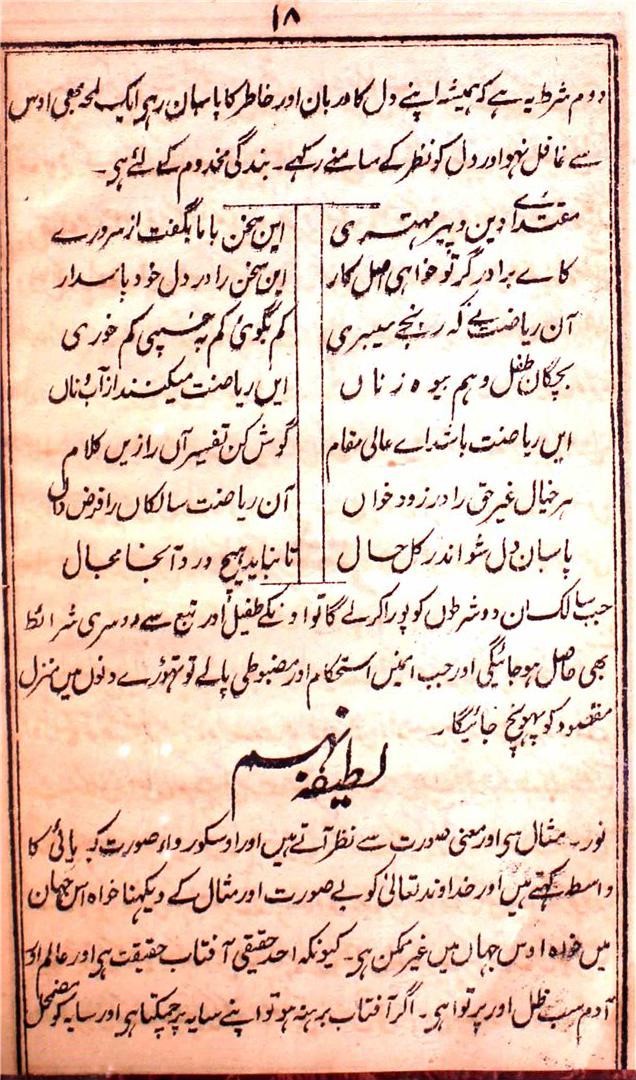 ۱۸
دوم شرط یہ ہے کہ ہمیشہ اپنے دل کا دربان اور خاطر کا پاسبان رہے ایک لمحہ بھی اوس
سے غافل نہو اور دل کو نظر کے سامنے رکہے۔ بندگی مخدوم کے لئے ہی۔
مقتدائے دین و پیر مہتری این سخن با ما بگفت از سرورے
کاے برادر گر تو خواہی اصل کار این سخن را در دل خود پاسدار
آن ریاضت نے کہ رنجے میبری کم بگوئی کم بہ خسپی کم خوری
بچگان طفل و ہم بیوہ زناں ایں ریاضت میکنند از آب و ناں
ایں ریاضت باشد اے عالی مقام گوش کن تفسیر آں را زیں کلام
ہر خیال غیر حق را درزد خواں آن ریاضت سالکاں را فرض داں
پاسبان دل شو اندر کل حال تا نباید ہیچ درد آنجا مجال
جب سالک ان دو شرطوں کو پورا کرلے گا تو اونکے طفیل اور تبع سے دوسری شرائط
بھی حاصل ہو جائیگی اور جب انمیں استحکام اور مضبوطی پالے تو تہوڑے دنوں میں منزل
مقصود کو پہونچ جائیگا۔
لطیفہ نہم
نور۔ مثال ہی اور معنی صورت سے نظر آتے ہیں اور اوسکو رواء صورت کبریائی کا
واسطہ کہتے ہیں اور خداوند تعالیٰ کو بے صورت اور مثال کے دیکہنا خواہ اس جہان
میں خواہ اوس جہاں میں غیر ممکن ہی۔ کیونکہ احد حقیقی آفتاب حقیقت ہی اور عالم او
آدم سب ظل اور پرتو اہی۔ اگر آفتاب برہنہ ہو تو اپنے سایہ پر چمکتا ہی اور سایہ کو مضمحل